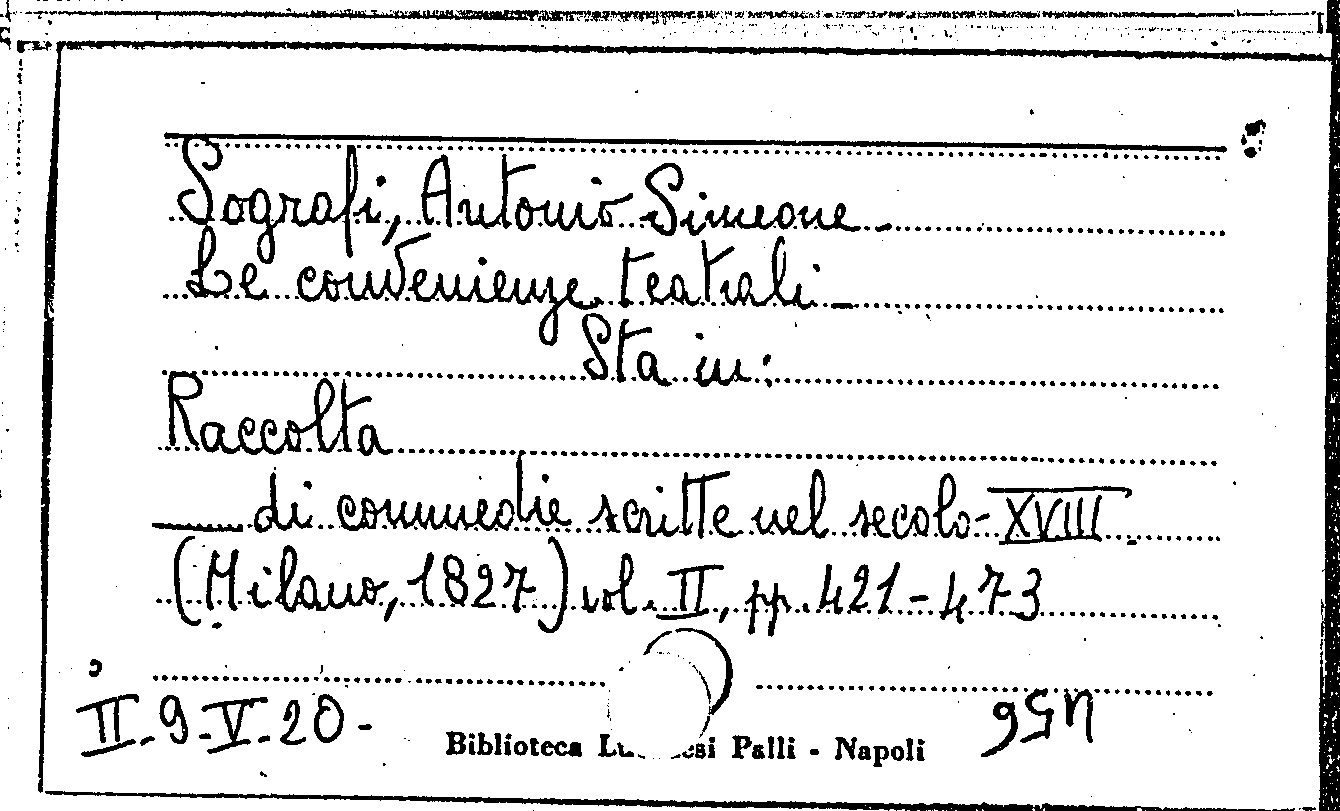 Sografi, Antonio Simeone -
Le convenienze teatrali -
Sta in:
Raccolta
di commedie scritte nel secolo - XVIII.
(Milano, 1827) vol. II, pp. 421 - 473
II. 9. V. 20 -
Biblioteca Palli - Napoli